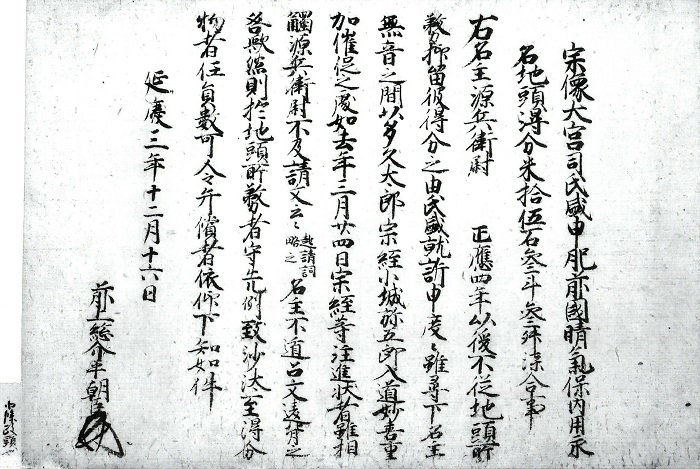 宗像大宮司氏盛申肥前國晴氣保内用永
名地頭得分米拾伍石参斗参舛深合事
右名主源兵衛尉 正應四年以後不從地頭所
務抑留彼得分之由氏盛就訴申度々雖尋下名主
無音之間以多久太郎宗經小城弥五郎入道妙喜重
加催促之處如去年三月廿四日宗經等注進状者雖相
觸源兵衛尉不及請文云々 起請詞略之 名主不遁召文違背之
咎歟然則於地頭所務者守先例致沙汰至得分
物者任員数可令弁償者依仰下知如件
延慶三年十二月十六日
前上総介平朝臣